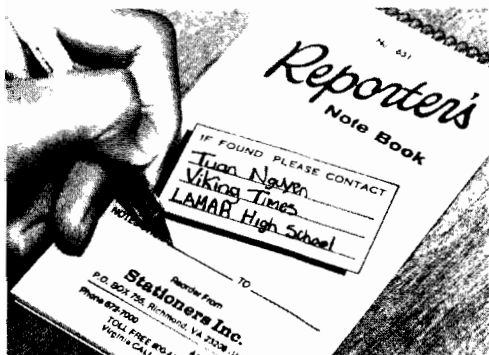 No. 631
Reporter's
Note Book
IF FOUND PLEASE CONTACT
Tuan Nguyen
Viking Times
LAMAR High School
TO
Reorder From
Stationers Inc.
P.O. BOX 756, Richmond, VA 23206
Phone 675-7000
TOLL FREE
Virginia